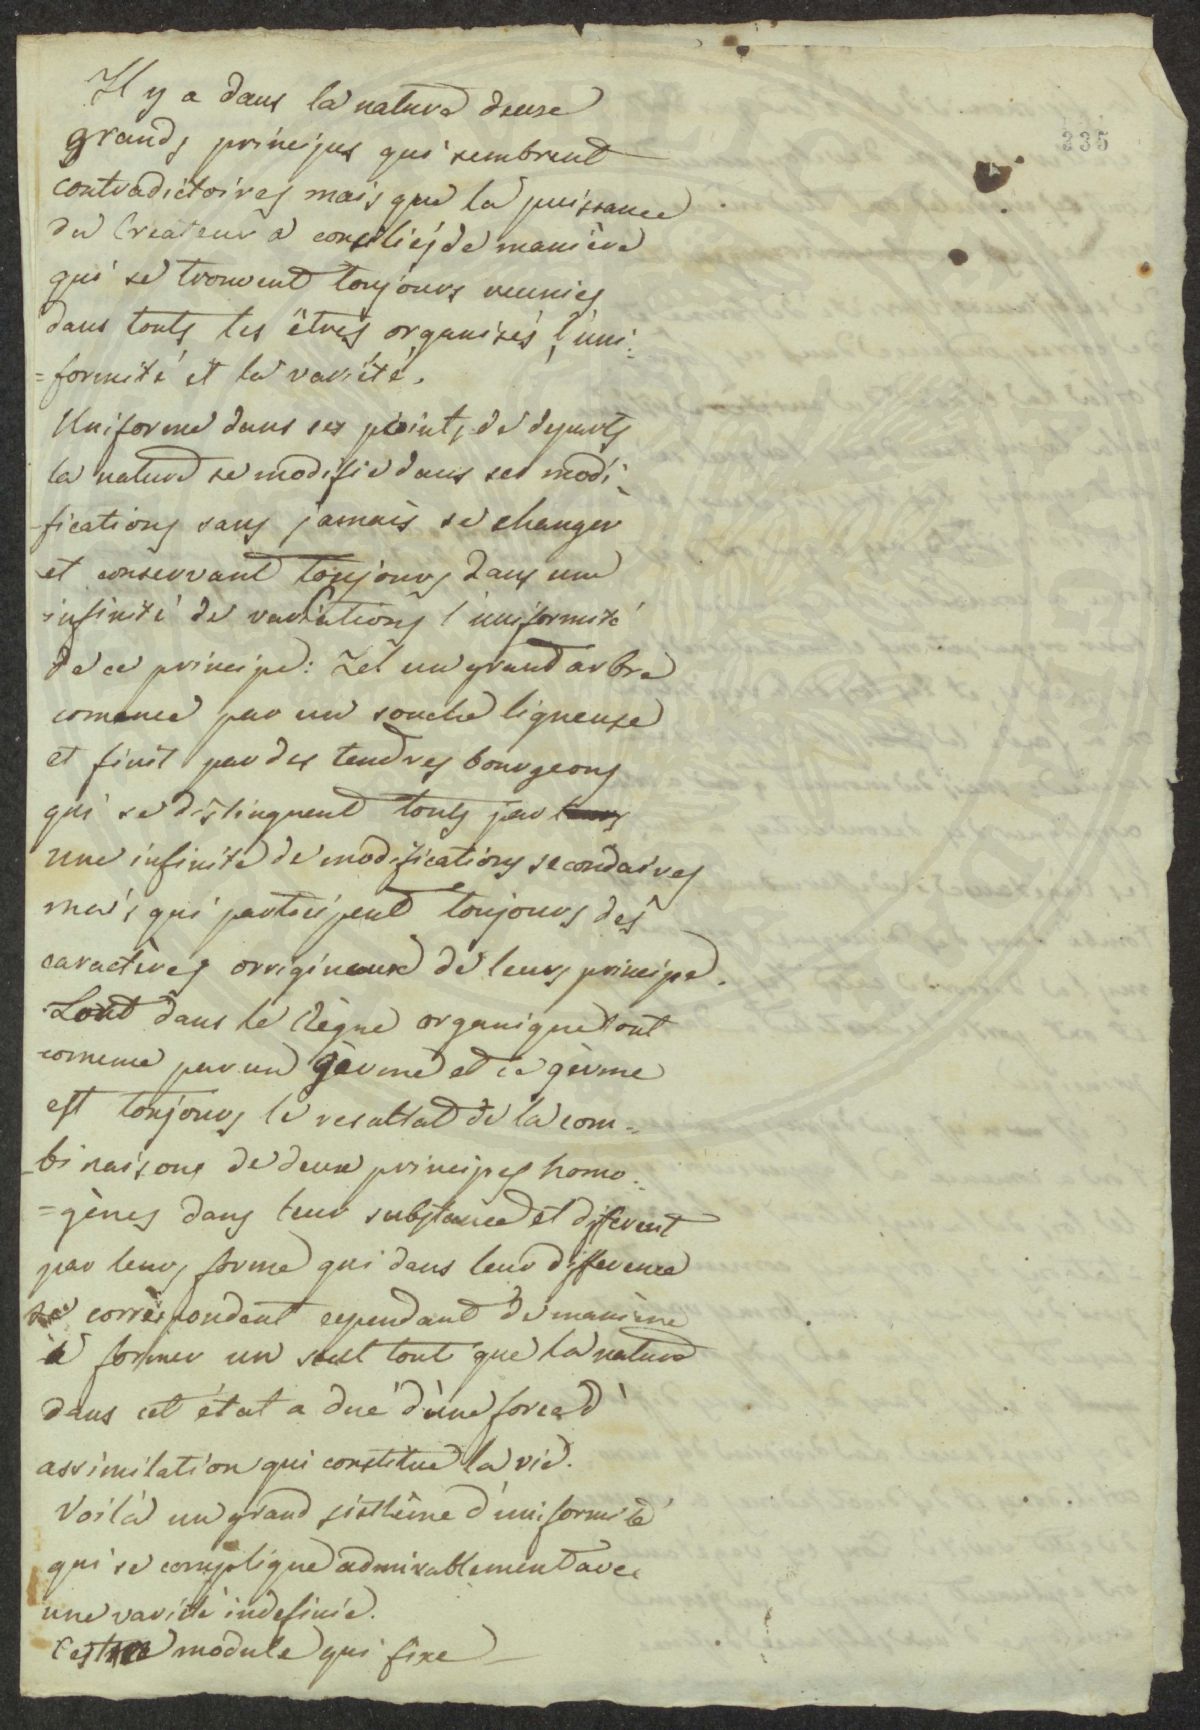 335
Il y a dans la nature deuxe
grands principes qui semblent
contradictoires mais que la puissance
du Createur a conciliés de manière
qui se trouvent toujours reunies
dans touts les êtres organisés, l'uni=
=formité et la varièté.
Uniforme dans ses points de departs
la nature se modifie dans ses modi-
-fications sans jamais se changer
et conservant toujours dans une
infinité de variations l'uniformité
de ce principe: Tel un grand arbre
comence par un souche ligneuse
et finit par des tendres bourgeons
qui se distinguent touts par
une infinité de modifications secondaires
mais qui partecipent toujours des
caractères origineaux de leurs principe.
Tout dans le Règne organique tout
comence par un gèrme et ce gèrme
est toujours le resultat de la com=
-binaisons de deux principes homo=
=gènes dans leur substance et diferent
par leurs forme qui dans leur difference
se corrèspondent cependant de manière
à former un seul tout que la nature
dans cet état a dué d'une force d'
assimilation qui constitue la vie.
Voilà un grand sisthême d'uniformité
qui se complique admirablement avec
une varieté indefinie.
C'est module qui fixe